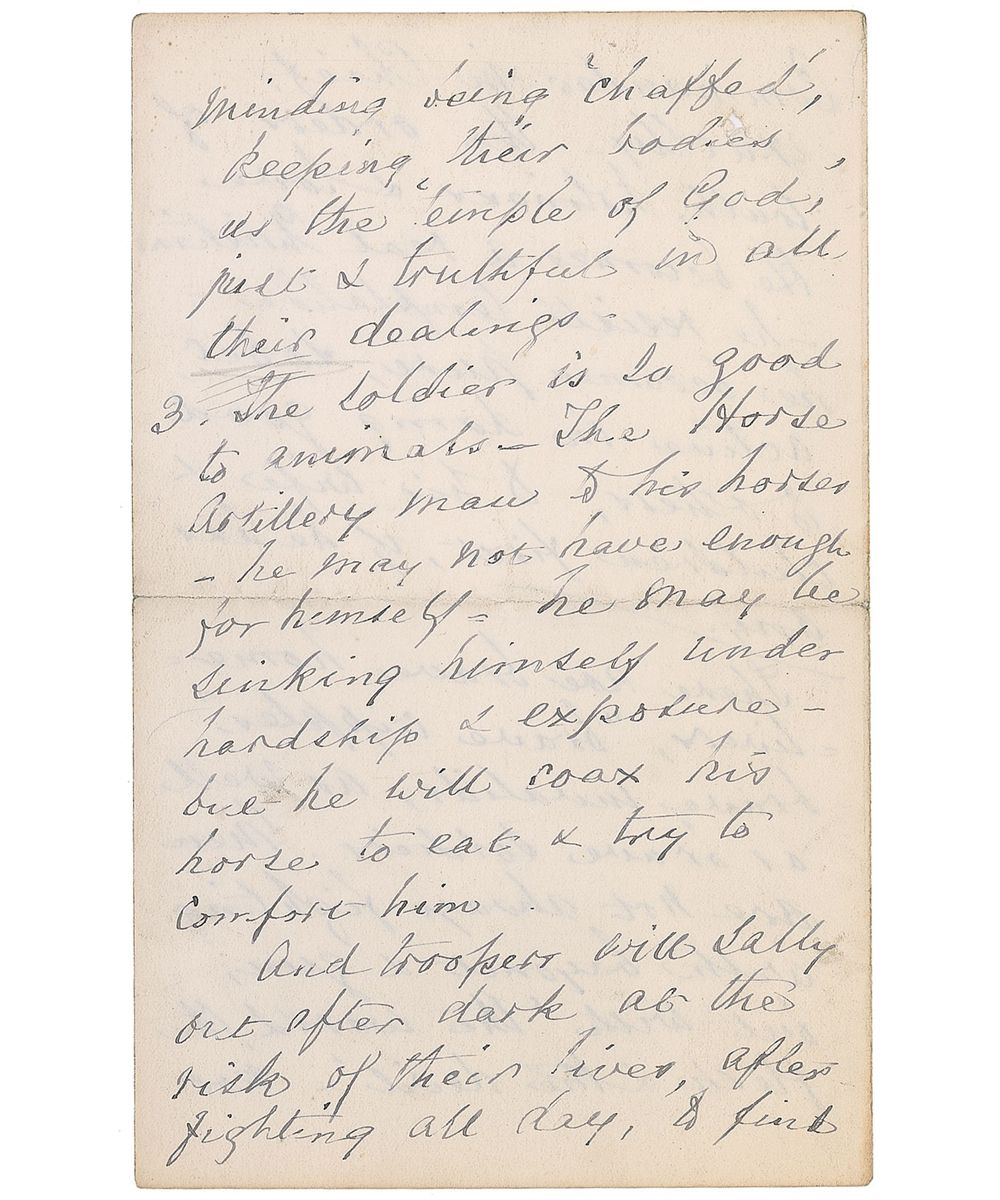 minding being 'chaffed',
keeping their bodies,
as the 'temple of God,'
just & truthful in all
their dealings -
3. The soldier is so good
to animals - The Horse
Artillery man & his horses
- he may not have enough
for himself = he may be
sinking himself under
hardship & exposure -
but he will coax his
horse to eat & try to
comfort him
And troopers will sally
out after dark at the
risk of their lives, after
fighting all day, to find